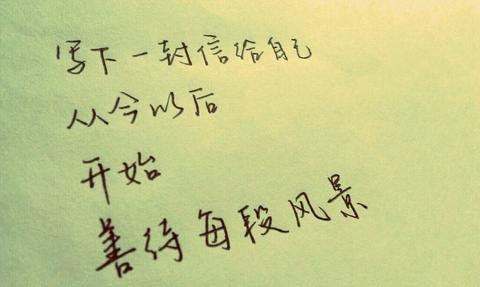 写下一封信给自己
从今以后
开始
善待每段风景